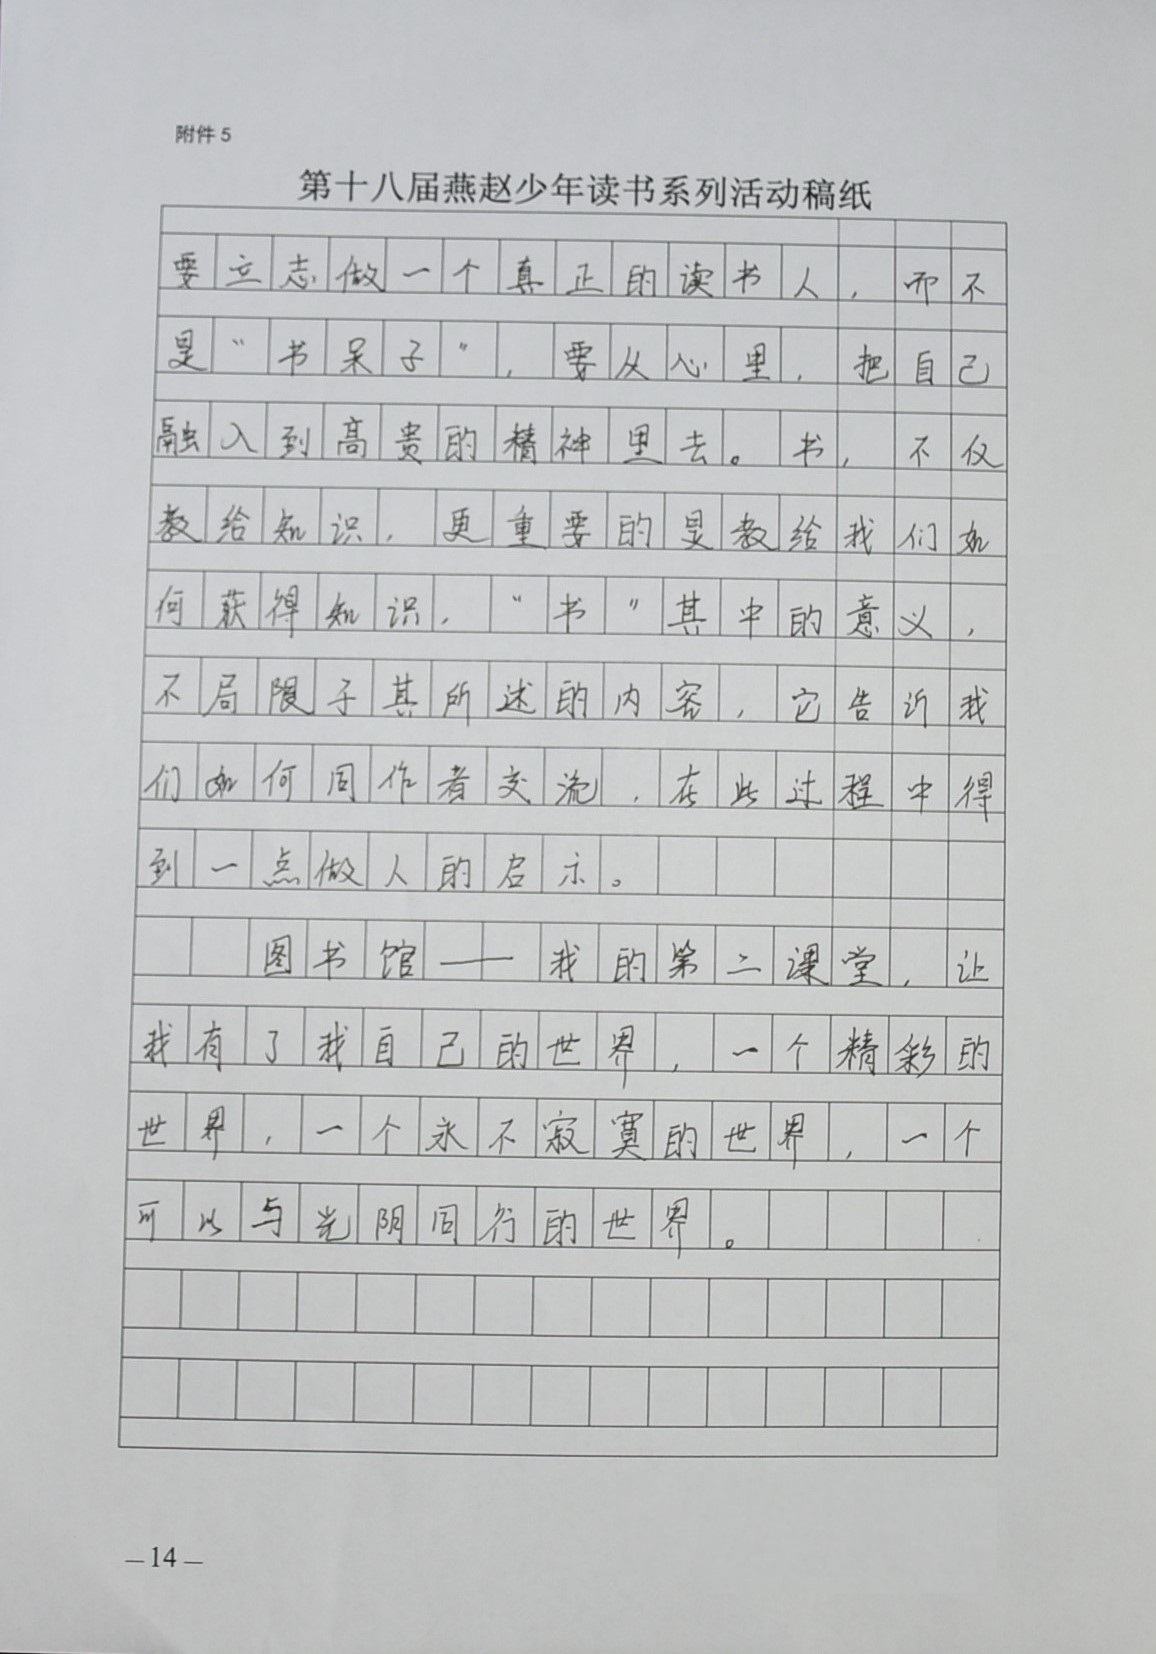 附件5
第十八届燕赵少年读书系列活动稿纸
要立志做一个真正的读书人，而不
是“书呆子”，要从心里，把自己
融入到高贵的精神里去。书，不仅
教给知识，更重要的是教给我们如
何获得知识，“书”其中的意义，
不局限于其所述的内容，它告诉我
们如何同作者交流，在此过程中得
到一点做人的启示。
图书馆——我的第二课堂，让
我有了我自己的世界，一个精彩的
世界，一个永不寂寞的世界，一个
可以与光阴同行的世界。
—14—